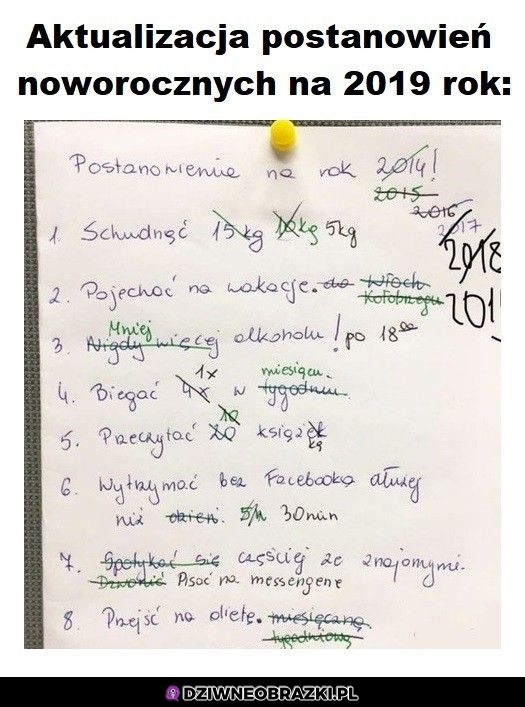 Aktualizacja postanowień
noworocznych na 2019 rok:
Postanowienie na rok 2014!
2015
2016
2017
2018
201
1. Schudnąć 15kg 10kg 5kg
2. Pojechać na wakacje. do Włoch
Kołobrzegu
Mniej
3. Nigdy więcej alkoholu! po 18⁰⁰
1x miesiącu.
4. Biegać 4x w tygodniu
10
5. Przeczytać 20 książek
kę
6. Wytrzymać bez Facebooka dłużej
niż dzień. 5h 30min
7. Spotykać się częściej ze znajomymi.
Dzwonić Pisać na messengerze
8. Przejść na dietę. miesięczną
tygodniową
DZIWNEOBRAZKI.PL